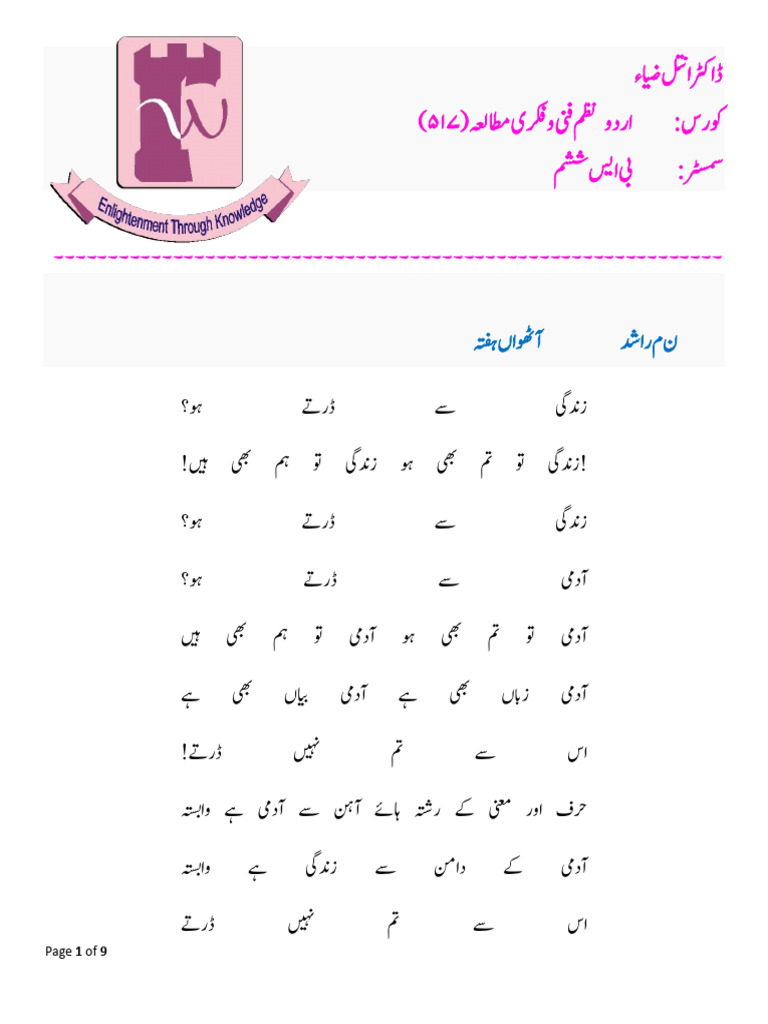 ڈاکٹر انتل ضیاء
کورس: اردو نظم فنی و فکری مطالعہ (۵۱۷)
سمسٹر: بی ایس ششم
Enlightenment Through Knowledge
ن م راشد آٹھواں ہفتہ
زندگی سے ڈرتے ہو؟
!زندگی تو تم بھی ہو زندگی تو ہم بھی ہیں!
زندگی سے ڈرتے ہو؟
آدمی سے ڈرتے ہو؟
آدمی تو تم بھی ہو آدمی تو ہم بھی ہیں
آدمی زباں بھی ہے آدمی بیاں بھی ہے
اس سے تم نہیں ڈرتے!
حرف اور معنی کے رشتہ ہائے آہن سے آدمی ہے وابستہ
آدمی کے دامن سے زندگی ہے وابستہ
اس سے تم نہیں ڈرتے
Page 1 of 9